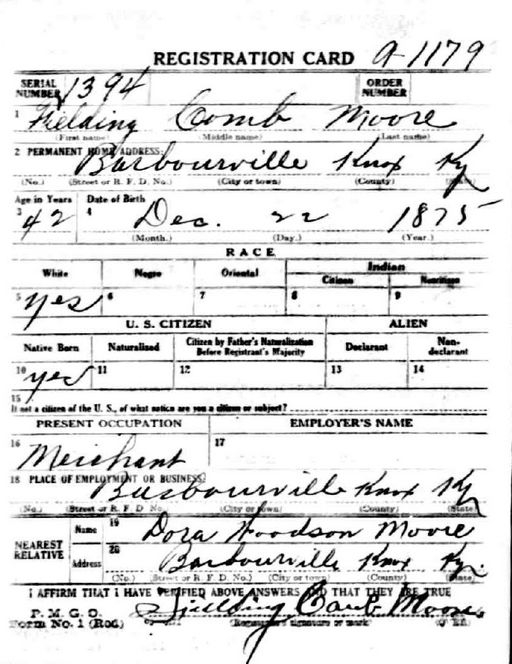 REGISTRATION CARD A-1179
SERIAL NUMBER 1394 ORDER NUMBER
1 Fielding Comb Moore
(First name) (Middle name) (Last name)
2 PERMANENT HOME ADDRESS:
Barbourville Knox Ky
(No.) (Street or R. F. D. No.) (City or town) (County) (State)
Age in Years Date of Birth
3 42 4 Dec. 22 1875
(Month.) (Day.) (Year.)
RACE
White Negro Oriental Indian
Citizen Noncitizen
5 yes 6 7 8 9
U. S. CITIZEN ALIEN
Native Born Naturalized Citizen by Father's Naturalization Before Registrant's Majority Declarant Non-declarant
10 yes 11 12 13 14
15
If not a citizen of the U. S., of what nation are you a citizen or subject?
PRESENT OCCUPATION EMPLOYER'S NAME
16 Merchant 17
18 PLACE OF EMPLOYMENT OR BUSINESS:
Barbourville Knox Ky
(No.) (Street or R. F. D. No.) (City or town) (County) (State)
NEAREST RELATIVE Name 19 Dora Woodson Moore
Address 20 Barbourville Knox Ky.
(No.) (Street or R. F. D. No.) (City or town) (County) (State)
I AFFIRM THAT I HAVE VERIFIED ABOVE ANSWERS AND THAT THEY ARE TRUE
P. M. G. O.
Form No. 1 (Red) Fielding Comb Moore
(Registrant's signature or mark)